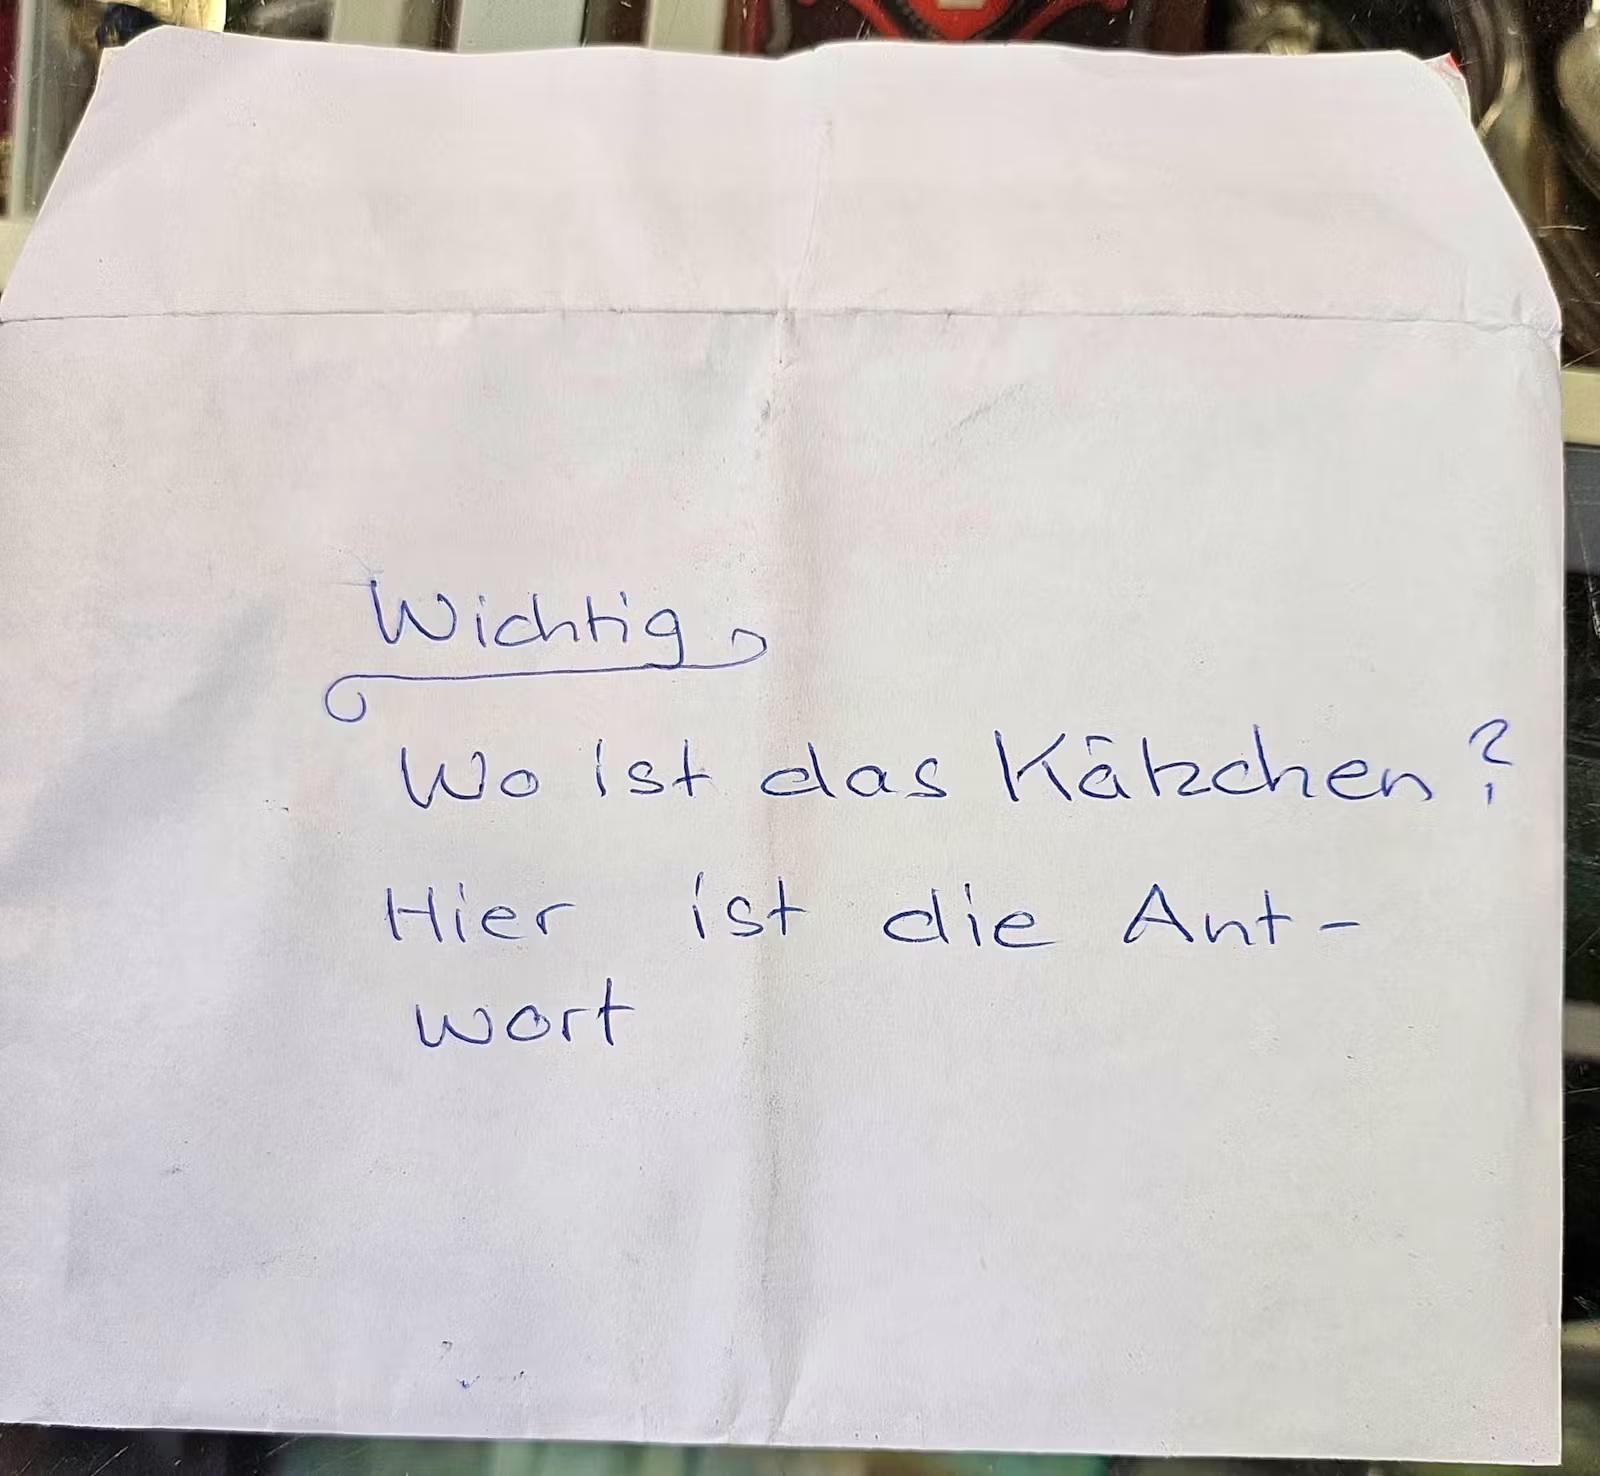 Wichtig
Wo ist das Kätzchen?
Hier ist die Ant-
wort